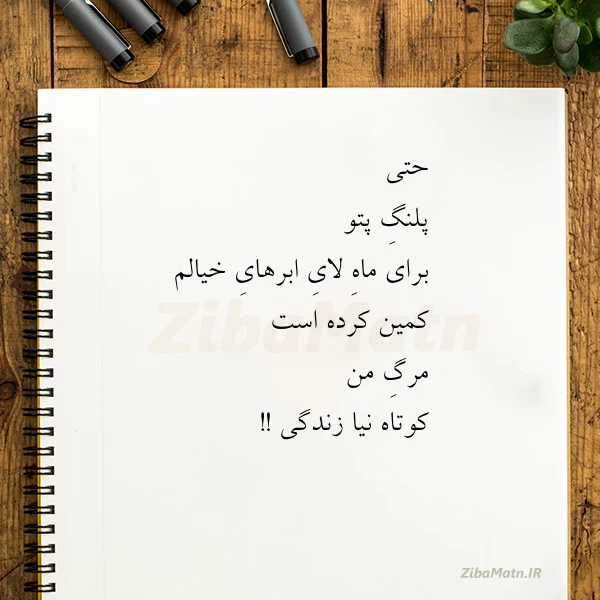 حتی
پلنگِ پتو
برای ماهِ لایِ ابرهایِ خیالم
کمین کرده است
مرگِ من
کوتاه نیا زندگی !!
ZibaMatn
ZibaMatn.IR